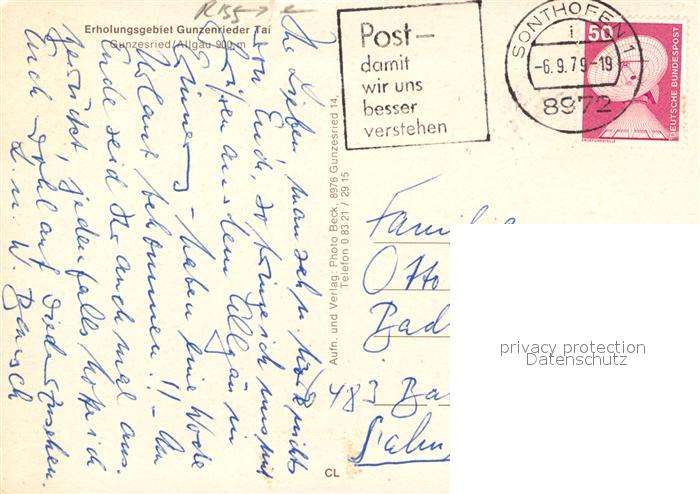 Erholungsgebiet Gunzenrieder Tal
Gunzesried/Allgäu 900 m
Ihr Lieben, man sah u. hört nichts
von Euch, so bringe ich uns mit
aus dem Allgäu in
Erinnerung - haben eine Woche
Urlaub bekommen!! - Am
Ende seid Ihr auch mal aus-
gerückt, jedenfalls hoffe ich
Euch wohlauf. Wiedersehen.
L. u. W.
Aufn. und Verlag: Photo Beck, 8976 Gunzesried 14,
Telefon 0 83 21 / 29 15
CL
Post-
damit
wir uns
besser
verstehen
SONTHOFEN 1
i
-6.9.79-19
8972
50
DEUTSCHE BUNDESPOST
ERDFUNKSTELLE
Familie
Otto
Bad
483 Ba
privacy protection
Datenschutz